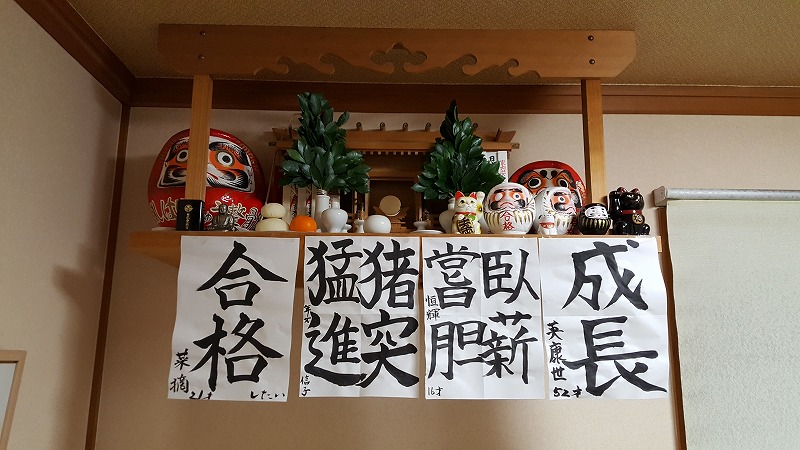 合格
合格
したい
菜摘
21才
猪突
猛進
年女
信子
臥薪
嘗胆
恒輝
16才
成長
英康世
52才